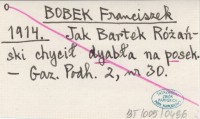 BOBEK Franciszek
1914. Jak Bartek Różań-
ski chycił dyabła na posek.
- Gaz. Podh. 2, nr 30.